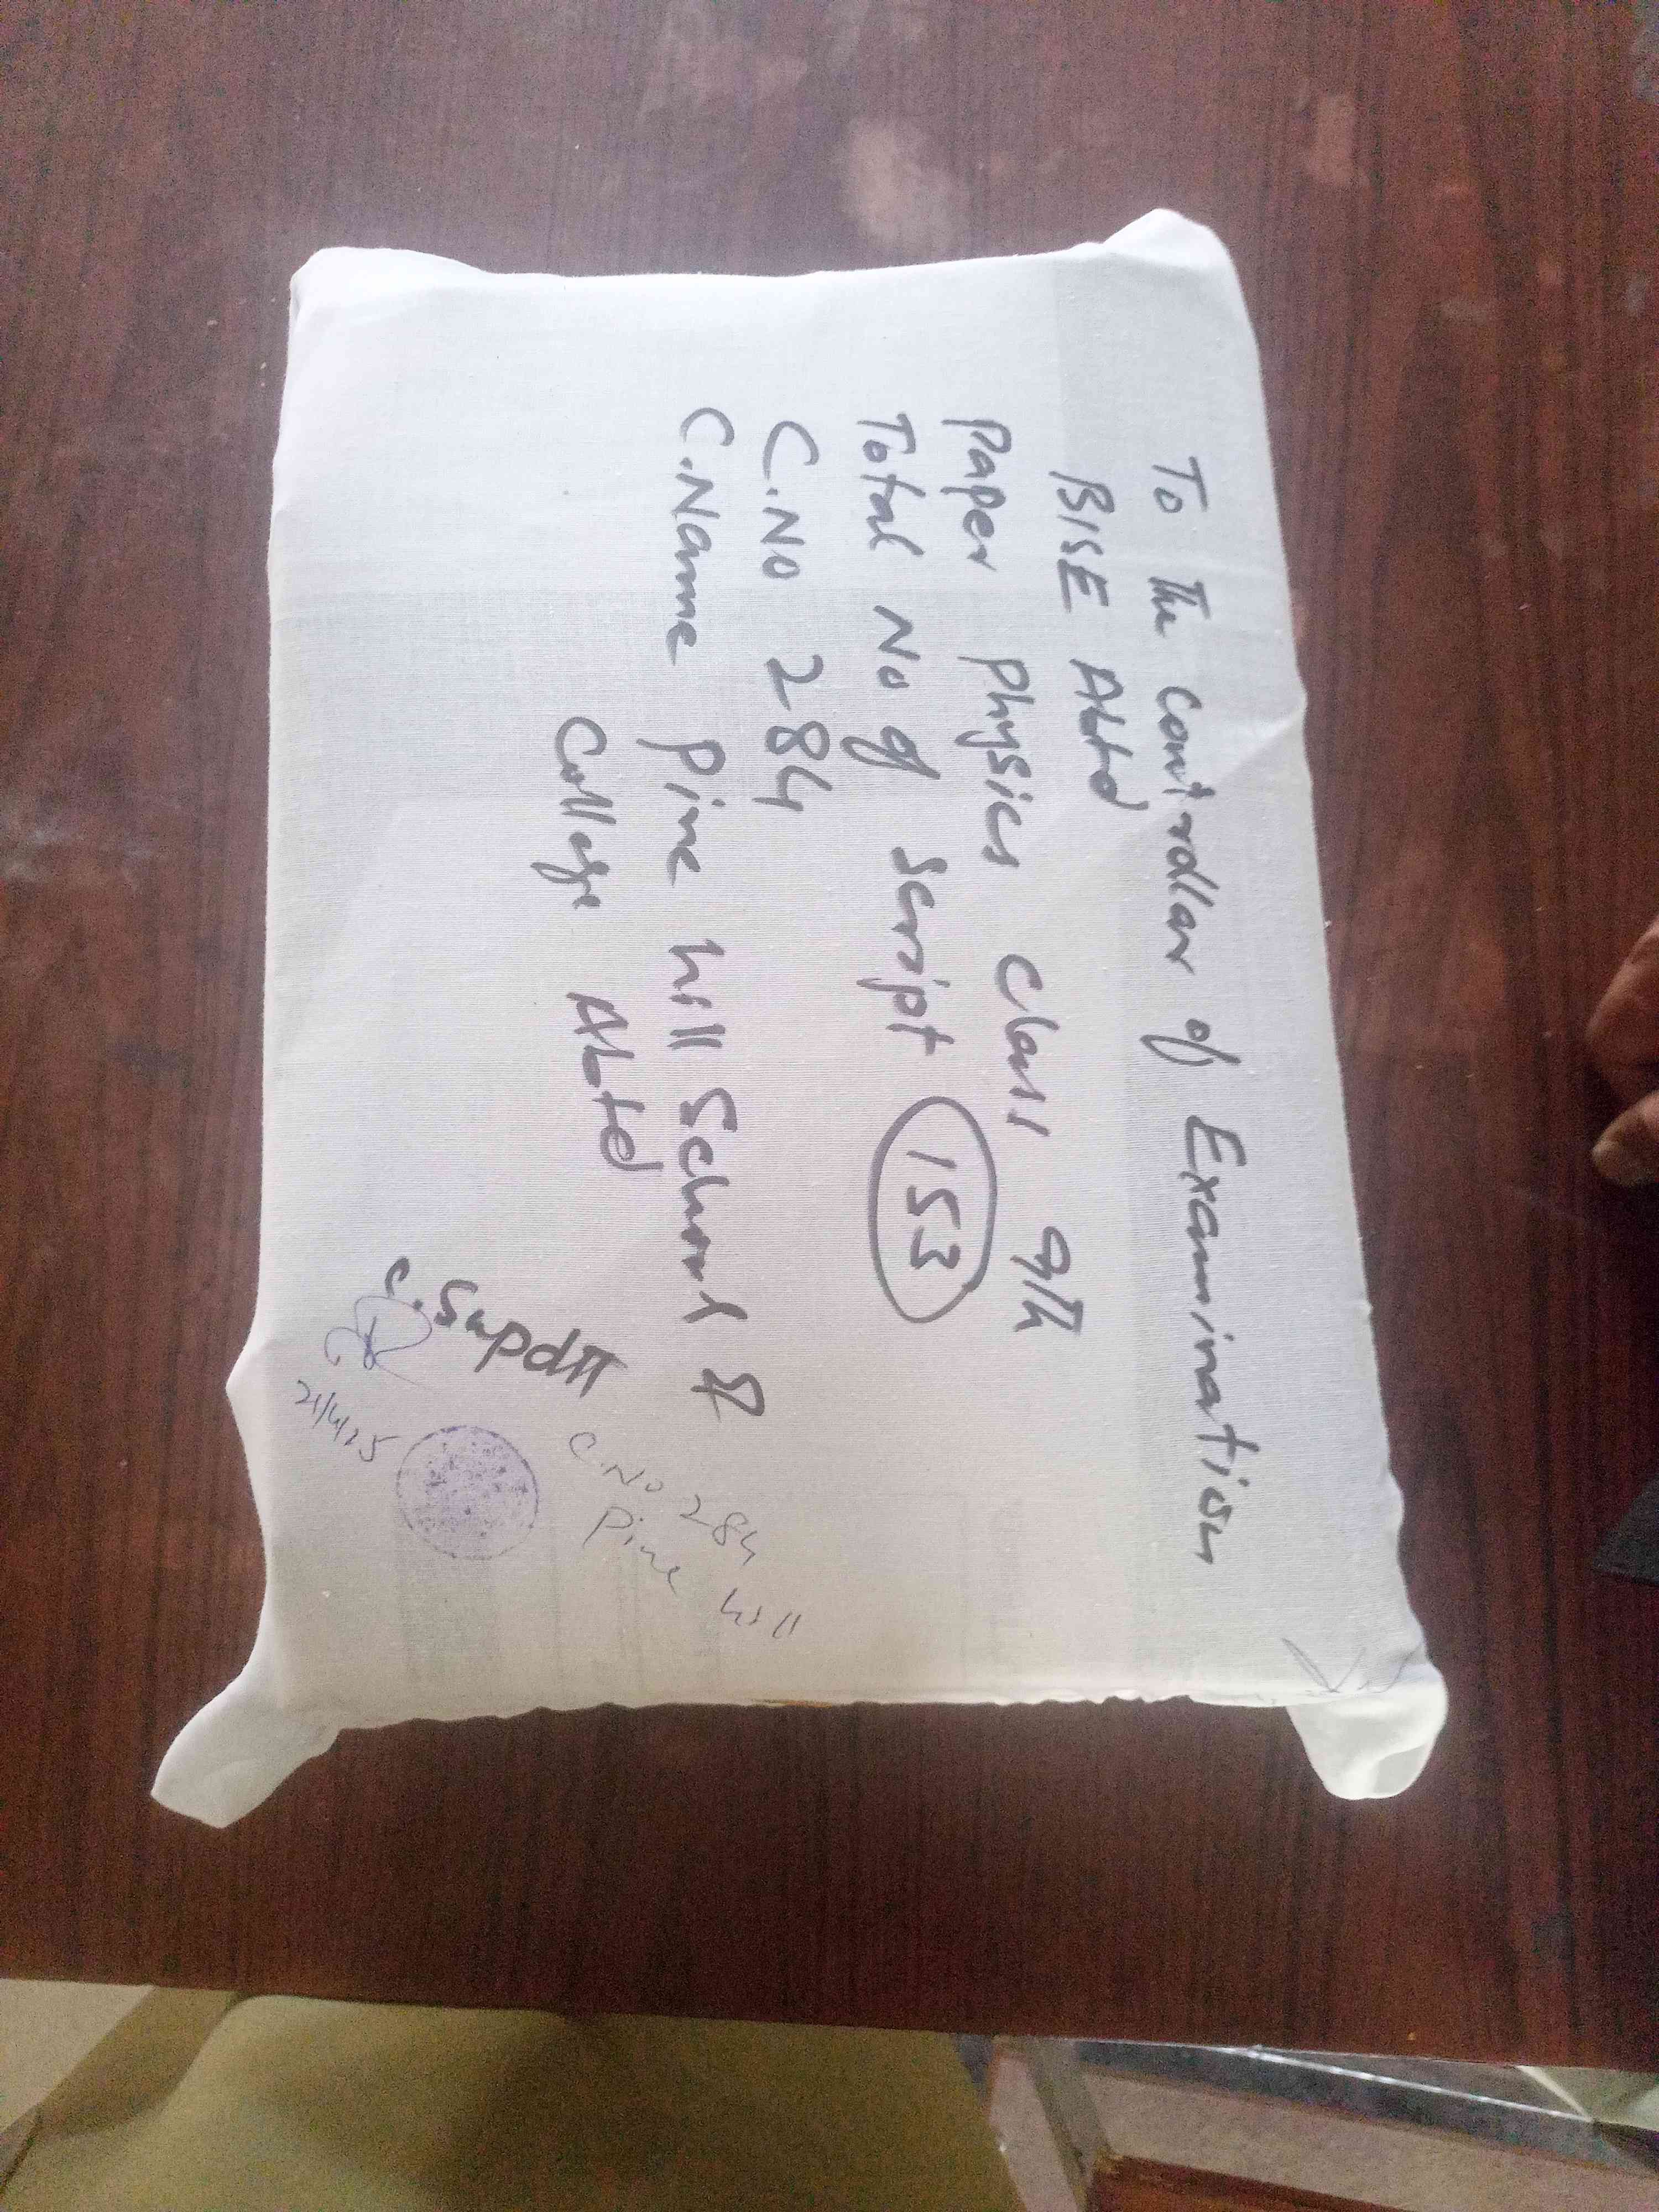 To The Controllar of Examination
BISE Abtd
Paper Physics class 9th
Total No of Script 153
C.No 284
C.Name Pine hill School &
College Abtd
C. Supdtt
21/4/25
C.No 284
Pine hill